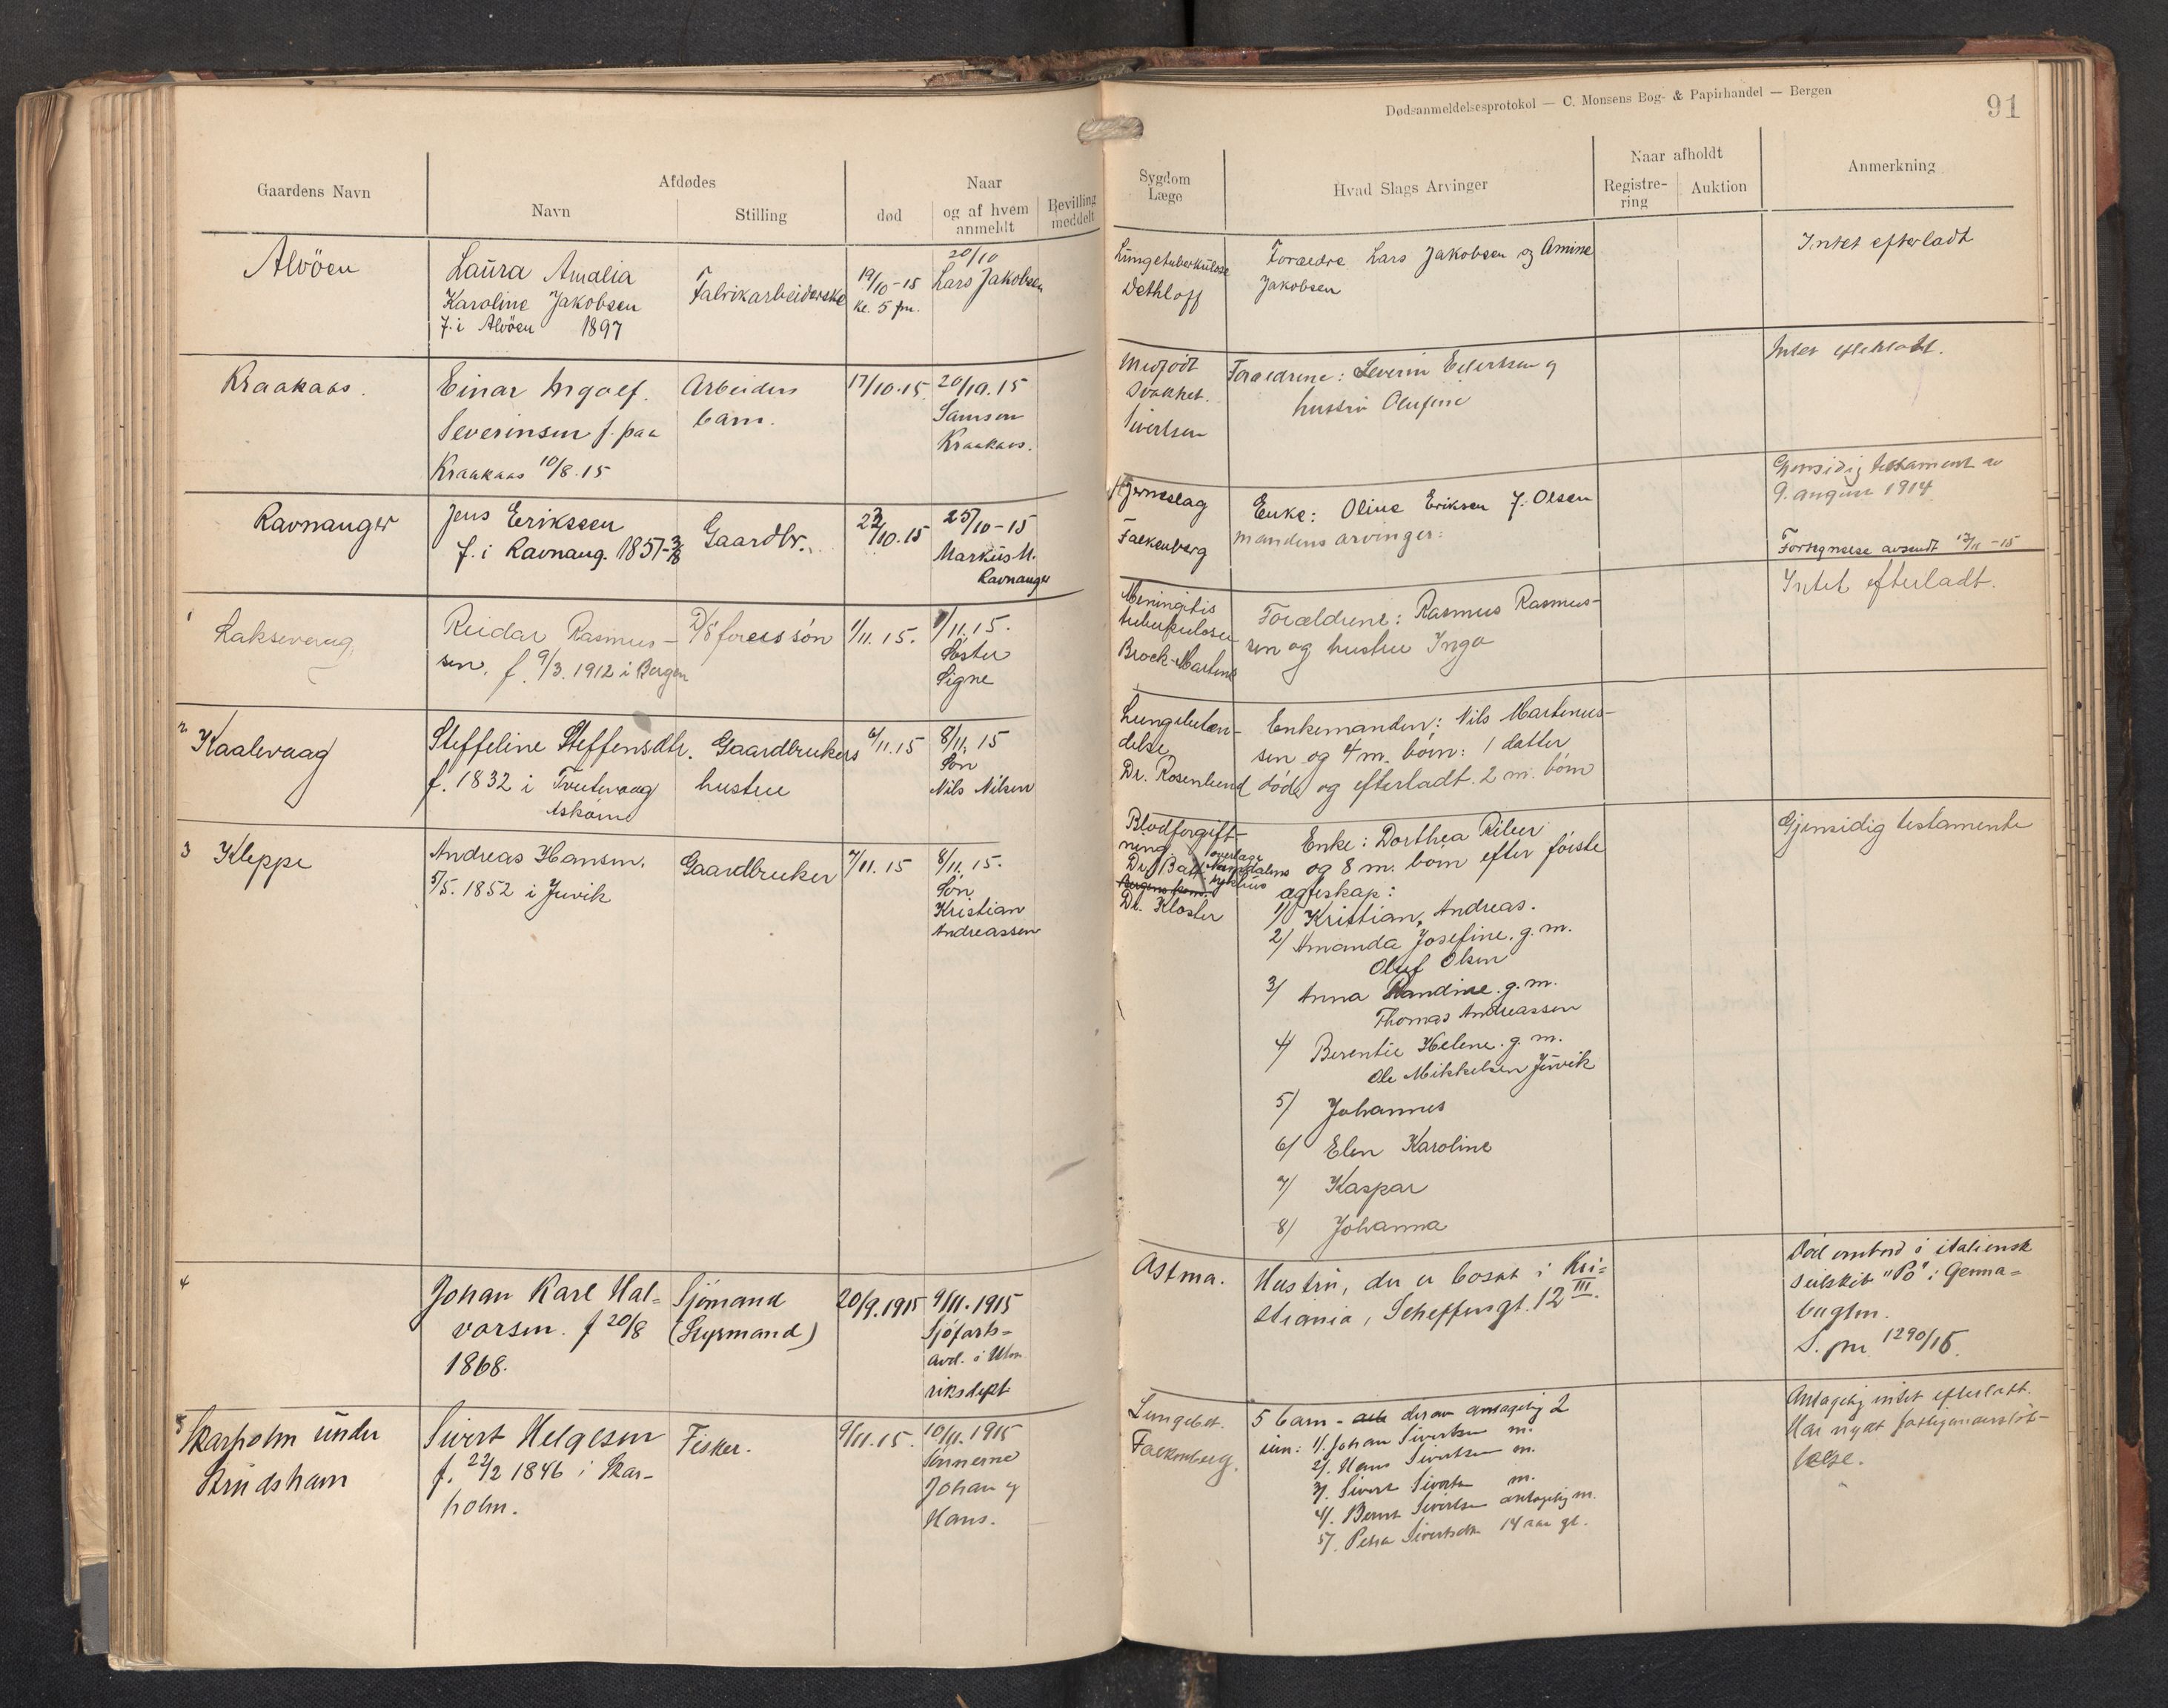 Dødsanmeldelsesprotokol — C. Monsens Bog- & Papirhandel — Bergen
91
Gaardens Navn
Afdødes
Navn
Stilling
død
Naar
og af hvem
anmeldt
Bevilling
meddelt
Sygdom
Læge
Hvad Slags Arvinger
Naar afholdt
Registre-
ring
Auktion
Anmerkning
Alvöen
Laura Amalia
Karoline Jakobsen
f. i Alvöen 1897
Fabrikarbeiderske
19/10-15
kl. 5 fm.
20/10
Lars Jakobsen
Lungetuberkulose
Dethloff
Foraedre Lars Jakobsen og Amine
Jakobsen
Intet efterladt
Kraakaas.
Einar Ingolf.
Severinsen f. paa
Kraakaas 10/8.15
Arbeiders
barn.
17/10.15
20/10.15
Samson
Kraakaas.
Medfödt
svakhet.
Sivertsen
Foraeldrene: Severin Eilertsen og
hustru Olufine
Intet efterladt.
Ravnanger
Jens Erikssen
f. i Ravnang. 1857-
Gaardbr.
22/10.15
25/10-15
Markus M.
Ravnanger
Hjerneslag
Falkenberg
Enke: Oline Eriksen f. Olsen
mandens arvinger:
Gjensidig testament av
9. august 1914
Fortegnelse avsendt 12/11-15
1
Laksevaag,
Reidar Rasmus-
sen, f. 9/3. 1912 i Bergen
søn
1/11. 15.
1/11. 15.
Søster
Signe
Meningitis
tuberkulose
Brock-Martens
Forældrene: Rasmus Rasmus-
sen og hustru Inga
Intet efterladt.
2
Kaalevaag
Steffeline Steffensdtr.
f. 1832 i
Askøen
Gaardbrukers
hustru
6/11.15
8/11. 15
Søn
Nils Nilsen
Lungebeten-
delse
Dr. Rosenlund
Enkemanden: Nils Martinus-
sen og 4 m. børn: 1 datter
død og efterladt 2 m. børn
3
Kleppe
Andreas Hansen.
5/5. 1852 i Juvik
Gaardbruker
7/11. 15
8/11. 15.
Søn
Kristian
Andreassen
Blodforgift-
ning
overlæge
Namsdalens
sykehus
Dr. Kloster
Enke: Dorthea
og 8 m. børn efter første
egteskap:
1) Kristian, Andreas.
2) Amanda Josefine. g. m.
Oluf Olsen
3) Anna Randine. g. m.
Thomas Andreassen
4) Berentie Helene. g. m.
Ole Mikkelsen Juvik
5) Johannes
6) Elen Karoline
7) Kaspar
8) Johanna
Gjensidig testamente
4
Johan Karl Hal-
vorsen. f 20/8
1868.
Sjömand
(Styrmand)
20/9.1915
9/11.1915
Sjöfarts-
avd. i Uten
riksdept.
Astma.
Hustru, der er bosat i Kri-
stiania, Scheffersgt. 12 III.
Död ombord i italiensk
seilskib "Po" i Genua-
bugten.
S. pnr 1290/15.
5
Skarholm under
Strudshavn
Sivert Helgesen
f. 22/2 1846 i Skar-
holm.
Fisker.
9/11.15.
10/11.1915
Sönnerne
Johan og
Hans.
Lungebet.
Falkenberg.
5 barn - derav antagelig 2
um: 1/. Johan Sivertsen m.
2/. Hans Sivertsen m.
3/. Sivert Sivertsen m.
4/. Bernt Sivertsen antagelig m.
5/. Petra Sivertsdtr 14 aar gl.
Antagelig intet efterladt.
Har nydt fattigunderstöt-
telse.